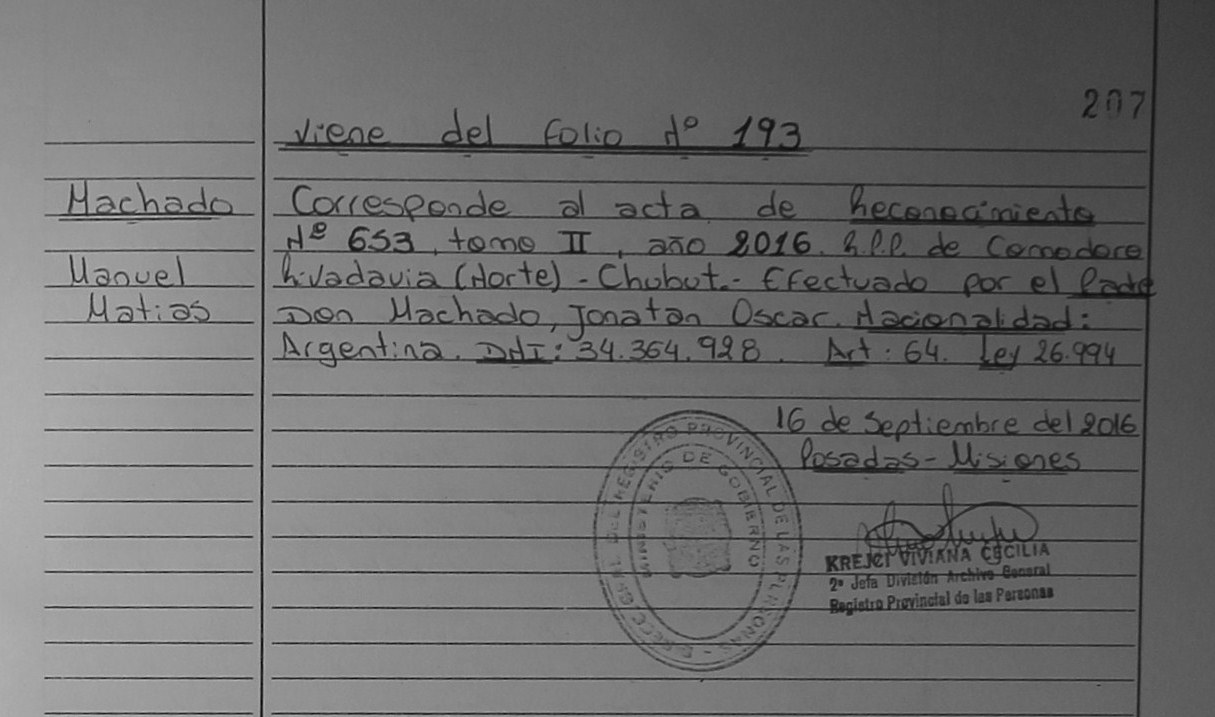 207
Viene del Folio Nº 193
Machado
Manuel
Matias
Corresponde al acta de Reconocimiento
Nº 653, tomo II, año 2016. R.P.P. de Comodoro
Rivadavia (Norte) - Chubut.- Efectuado por el Padre
Don Machado, Jonatan Oscar. Nacionalidad:
Argentina. DNI: 34.364.928. Art: 64. Ley 26.994
16 de Septiembre del 2016
Posadas - Misiones
DEL REGISTRO PROVINCIAL DE LAS PERSONAS
MINISTERIO DE GOBIERNO
KREJCI VIVIANA CECILIA
2º Jefa División Archivo General
Registro Provincial de las Personas